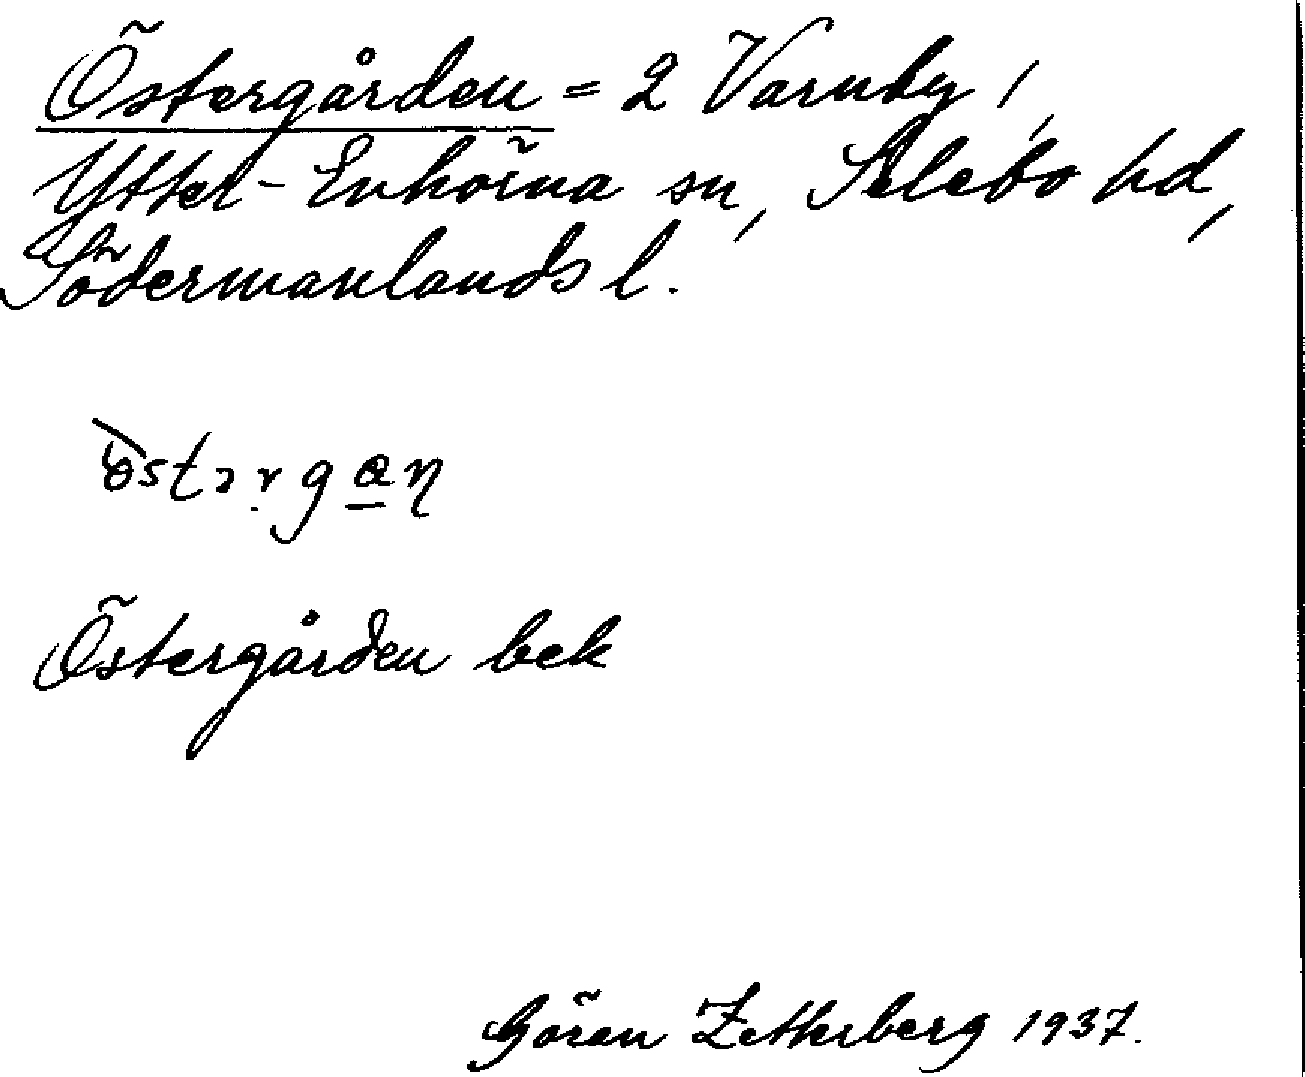 Östergården = 2 Varnby,
Ytter-Enhörna sn, Selebo hd,
Södermanlands l.
Östergården bek
Gören Zetterberg 1937.